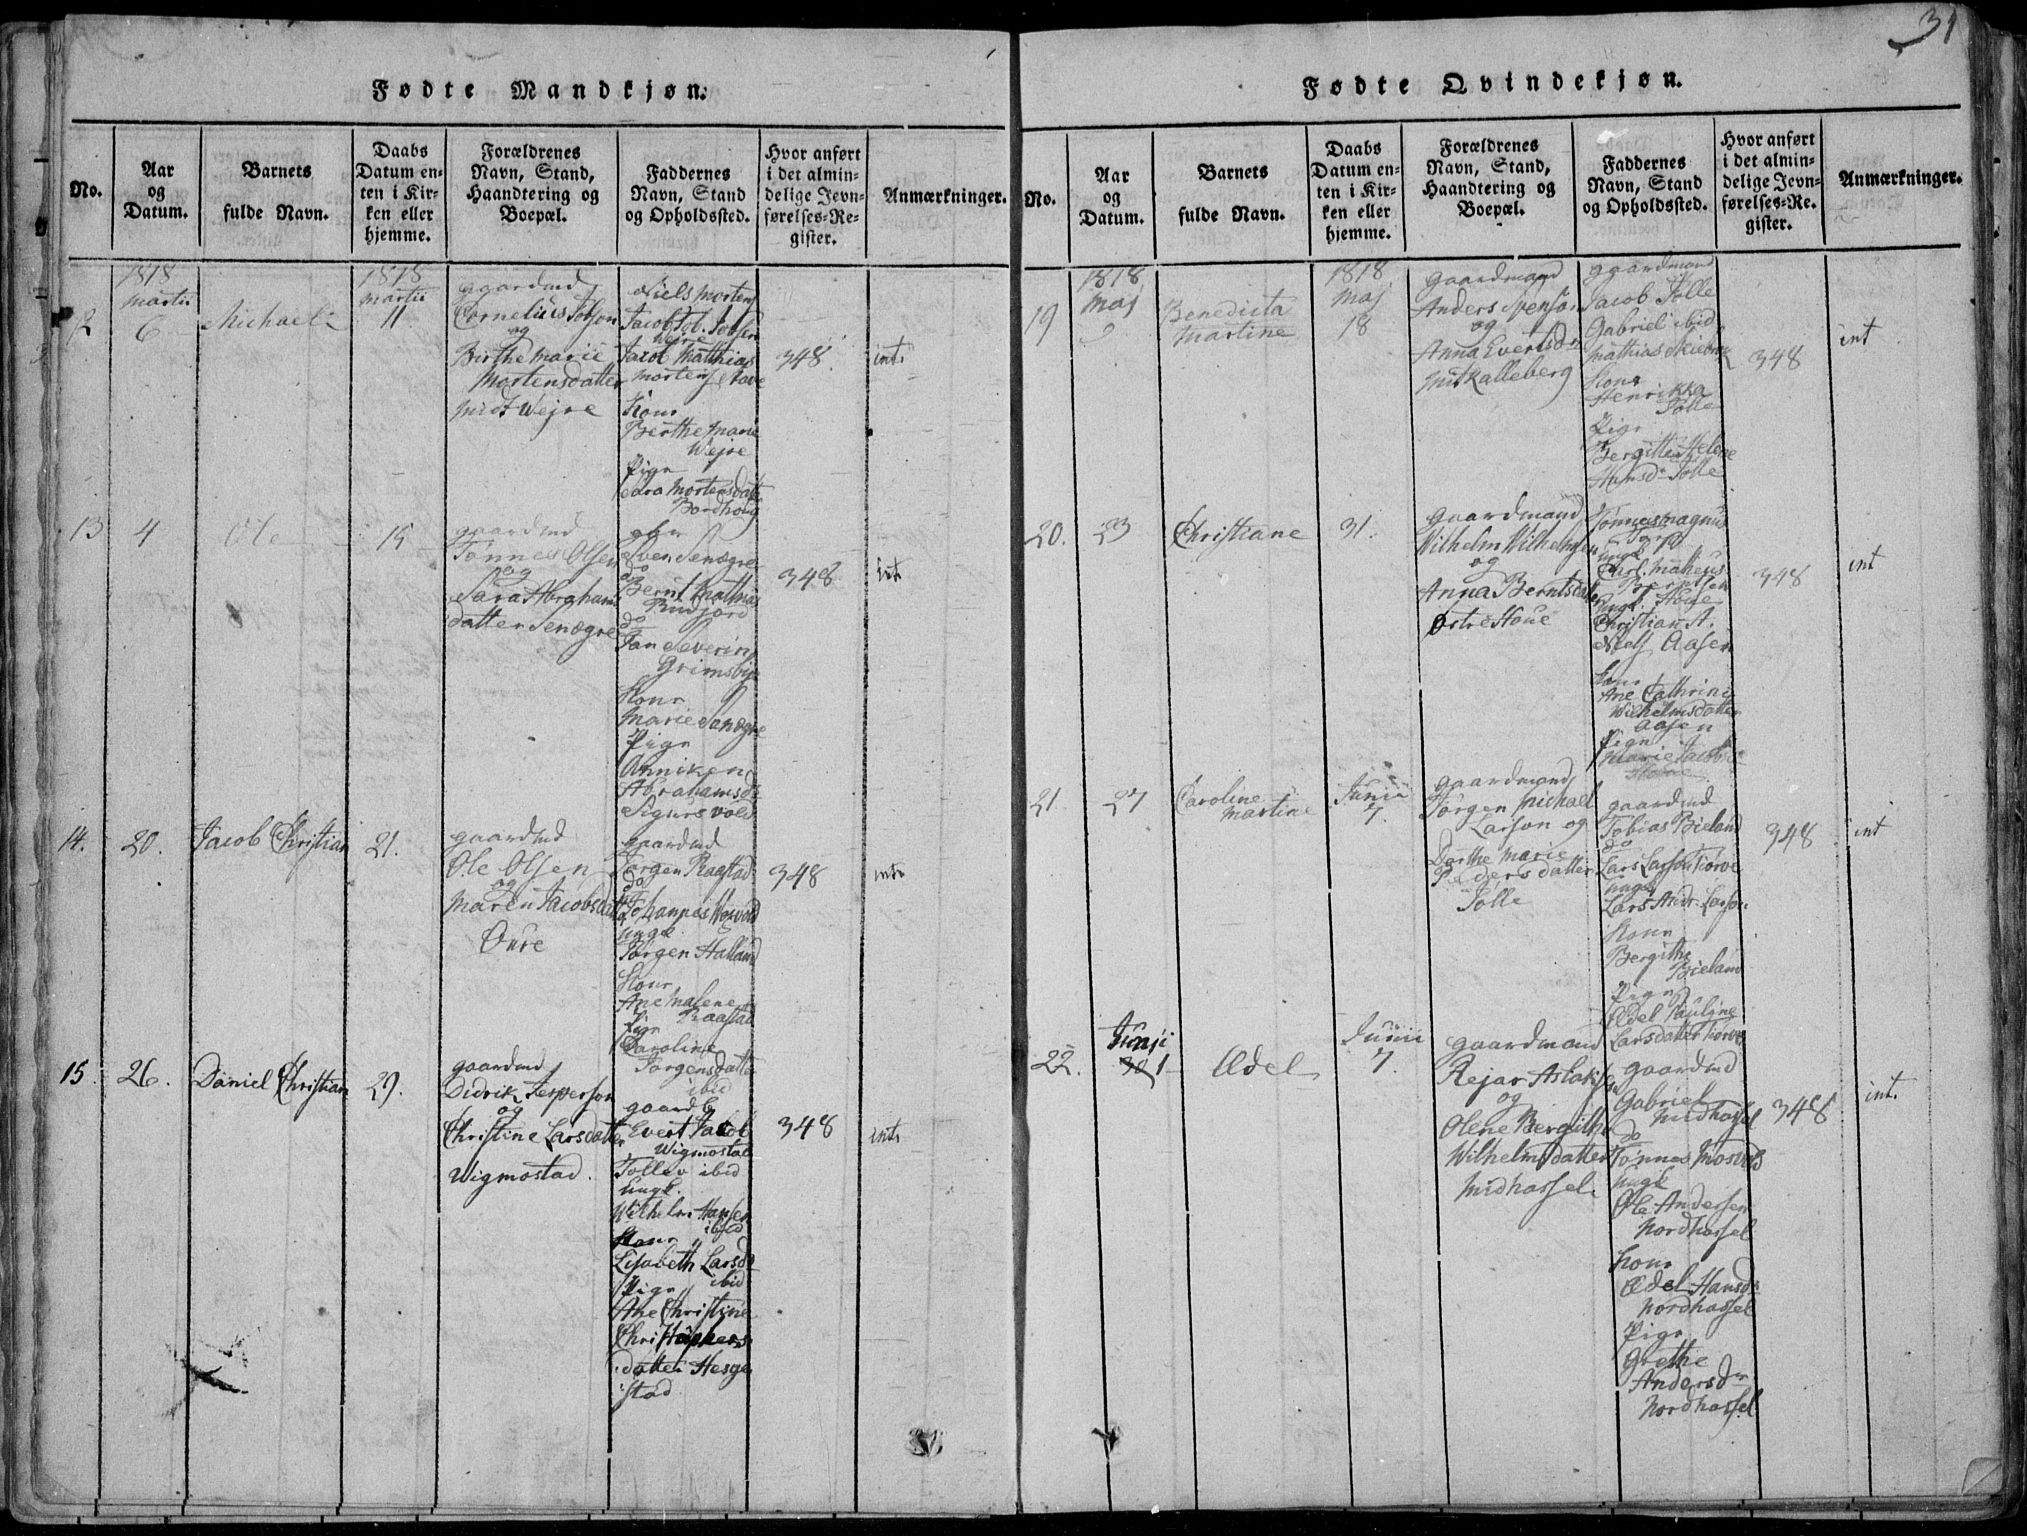 31
Fødte Mandkjøn.
No.
Aar
og
Datum.
Barnets
fulde Navn.
Daabs
Datum en=
ten i Kir=
ken eller
hjemme.
Forældrenes
Navn, Stand,
Haandtering og
Boepæl.
Faddernes
Navn, Stand
og Opholdssted.
Hvor anført
i det almin=
delige Jevn=
førelses=Re=
gister.
Anmærkninger.
1818
Martii
6
Michael
1818
Martii
11
gaardmd
Cornelius Jobson
og
Birthe Marie
Mortensdatter
Midt Wejre
Niels Mortens
Jacob Job. Jobsen
Wejre
Jacob Matthias
Mortens
Kone
Berthe Marie
Wejre
Pige
Sara Mortensdatt
348
int.
13
4
Ole
15
gaardmd
Tønnes Olsen
og
Sara Abrahams
datter Senægre
Sven Senægre
do
Bernt Mathias
Rudjord
do
Jan Severin
Grimsbye
Kone
Marie Senægre
Pige
Anniken
Abrahamsdr
Sigursvold
348
int
14.
20.
Jacob Christian
21.
gaardmd
Ole Olsen
og
Maren Jacobsdatt
Øure
gaardmd
Jørgen Raastad
do
Johannes
ungk
Jørgen Halland
Kone
Ane Malene
Raastad
Pige
Caroline
Jørgensdatter
ibid
348
int.
15.
26.
Daniel Christian
29.
gaardmd
Didrik Jesperson
og
Christine Larsdatter
Wigmostad.
Evert Jacob
Wigmostad
Tollev ibid
Ungk.
Wilhelm Hansen
ibid
Kone
Lisabeth Larsdr
ibid
Pige
Ane Christine
Christophers
datter Hesge
stad
348
int.
Fødte Qvindekjøn.
No.
Aar
og
Datum.
Barnets
fulde Navn.
Daabs
Datum en=
ten i Kir=
ken eller
hjemme.
Forældrenes
Navn, Stand,
Haandtering og
Boepæl.
Faddernes
Navn, Stand
og Opholdssted.
Hvor anført
i det almin=
delige Jevn=
førelses=Re=
gister.
Anmærkninger.
19
1818
Maj
9
Benedicta
Martine
1818
Maj
18
gaardmand
Anders Svenson
og
Anna Evertsdr
Midt Kalleberg
gaardmand
Jacob Jølle
Gabriel ibid
Mathias
Kone
Henrikka
Jølle
Pige
Bergitte Helene
Hansd. Jølle
348
int
20.
23
Christiane
31.
gaardmand
Wilhelm Wilhelmsen
og
Anna Berntsdatter
Østre Houe
Tønnes Magnus
ungk
Carl Matheus
Berntsen
Ungk. Houe
Christian A.
Niels Aasen
Kone
Ane Cathrine
Wilhelmsdatter
Aasen
Pige
Marie Jacobsd
348
int
21.
27
Caroline
Martine
Junii
7.
gaardmand
Jørgen Michael
Larson og
Dorthe Marie
Pedersdatter
Jølle
gaardmd
Tobias Bieland
do
Lars Larson Torve
ungk
Lars Andr. Larson
Kone
Bergithe
Bieland
Pige
Ædel Pauline
Larsdatter Torve
348
int
22.
Junji
1
Ædel
Junii
7.
gaardmand
Rejar Aslakson
og
Olene Bergithe
Wilhelmsdatter
Midhassel
gaardmd
Gabriel
Midhassel
do
Tønnes Mosvold
ungk
Ole Andersen
Nordhassel
Kone
Ædel Hansdr
Nordhassel
Pige
Grethe
Andersdr
Nordhassel
348
int.